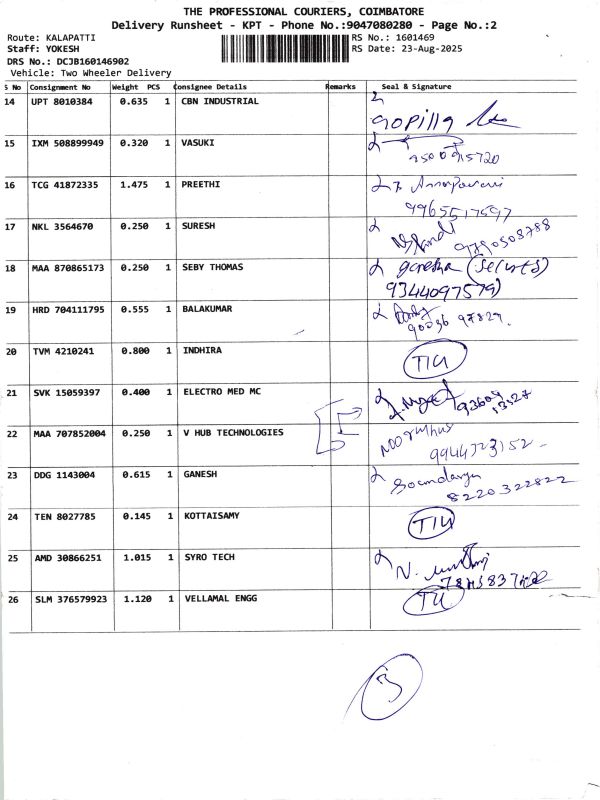 THE PROFESSIONAL COURIERS, COIMBATORE
Delivery Runsheet - KPT - Phone No.:9047080280 - Page No.:2
Route: KALAPATTI
Staff: YOKESH
DRS No.: DCJB160146902
Vehicle: Two Wheeler Delivery
RS No.: 1601469
RS Date: 23-Aug-2025
S No Consignment No Weight PCS Consignee Details Remarks Seal & Signature
14 UPT 8010384 0.635 1 CBN INDUSTRIAL
15 IXM 508899949 0.320 1 VASUKI
16 TCG 41872335 1.475 1 PREETHI
9965517597
17 NKL 3564670 0.250 1 SURESH
9790503788
18 MAA 870865173 0.250 1 SEBY THOMAS
9344097579)
19 HRD 704111795 0.555 1 BALAKUMAR
90036 97827.
20 TVM 4210241 0.800 1 INDHIRA
21 SVK 15059397 0.400 1 ELECTRO MED MC
22 MAA 707852004 0.250 1 V HUB TECHNOLOGIES
23 DDG 1143004 0.615 1 GANESH Soundarya
8220322822
24 TEN 8027785 0.145 1 KOTTAISAMY
25 AMD 30866251 1.015 1 SYRO TECH
26 SLM 376579923 1.120 1 VELLAMAL ENGG
3